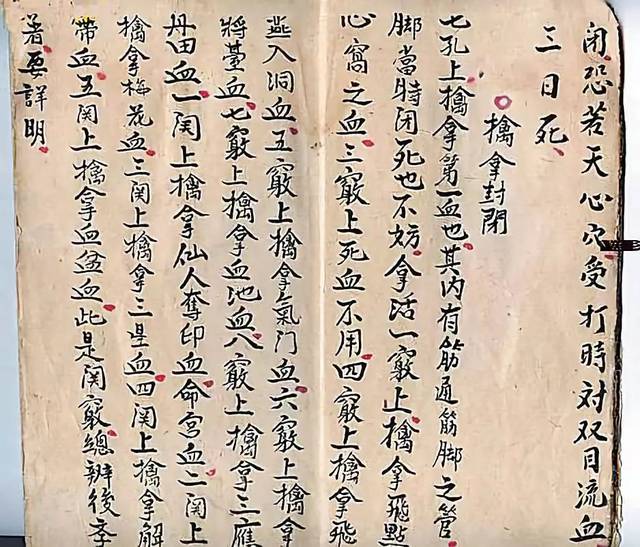 闭恐若天心穴受打時対双目流血
三日死
擒拿封閉
七孔上擒拿第一血也其内有筋通筋脚之管
脚當時闭死也不妨拿活一竅上擒拿飛點
心窩之血三竅上死血不用四竅上擒拿飛
燕入洞血五竅上擒拿氣门血六竅上擒拿
將臺血七竅上擒拿血池血八竅上擒拿三應
丹田血一関上擒拿仙人奪印血命宫血二関上
擒拿梅花血三関上擒拿三星血四関上擒拿解
帶血五関上擒拿血盆血此是関竅總辨後季
着要詳明